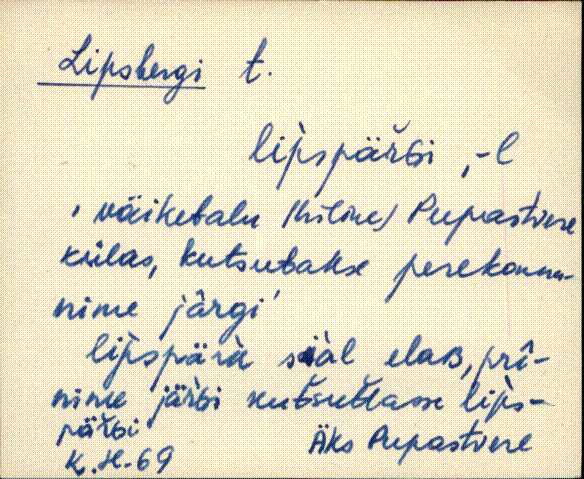 Lipsbergi t.
lìpspär̆Gi, -l
' väiketalu /hiline/ Pupastvere
külas, kutsutakse perekonna-
nime järgi'
lìpspäri siäl elaB, prî-
nime jär̆Gi kutsuttasse lìps-
pär̆Gi
K.H-69 Äks Pupastvere